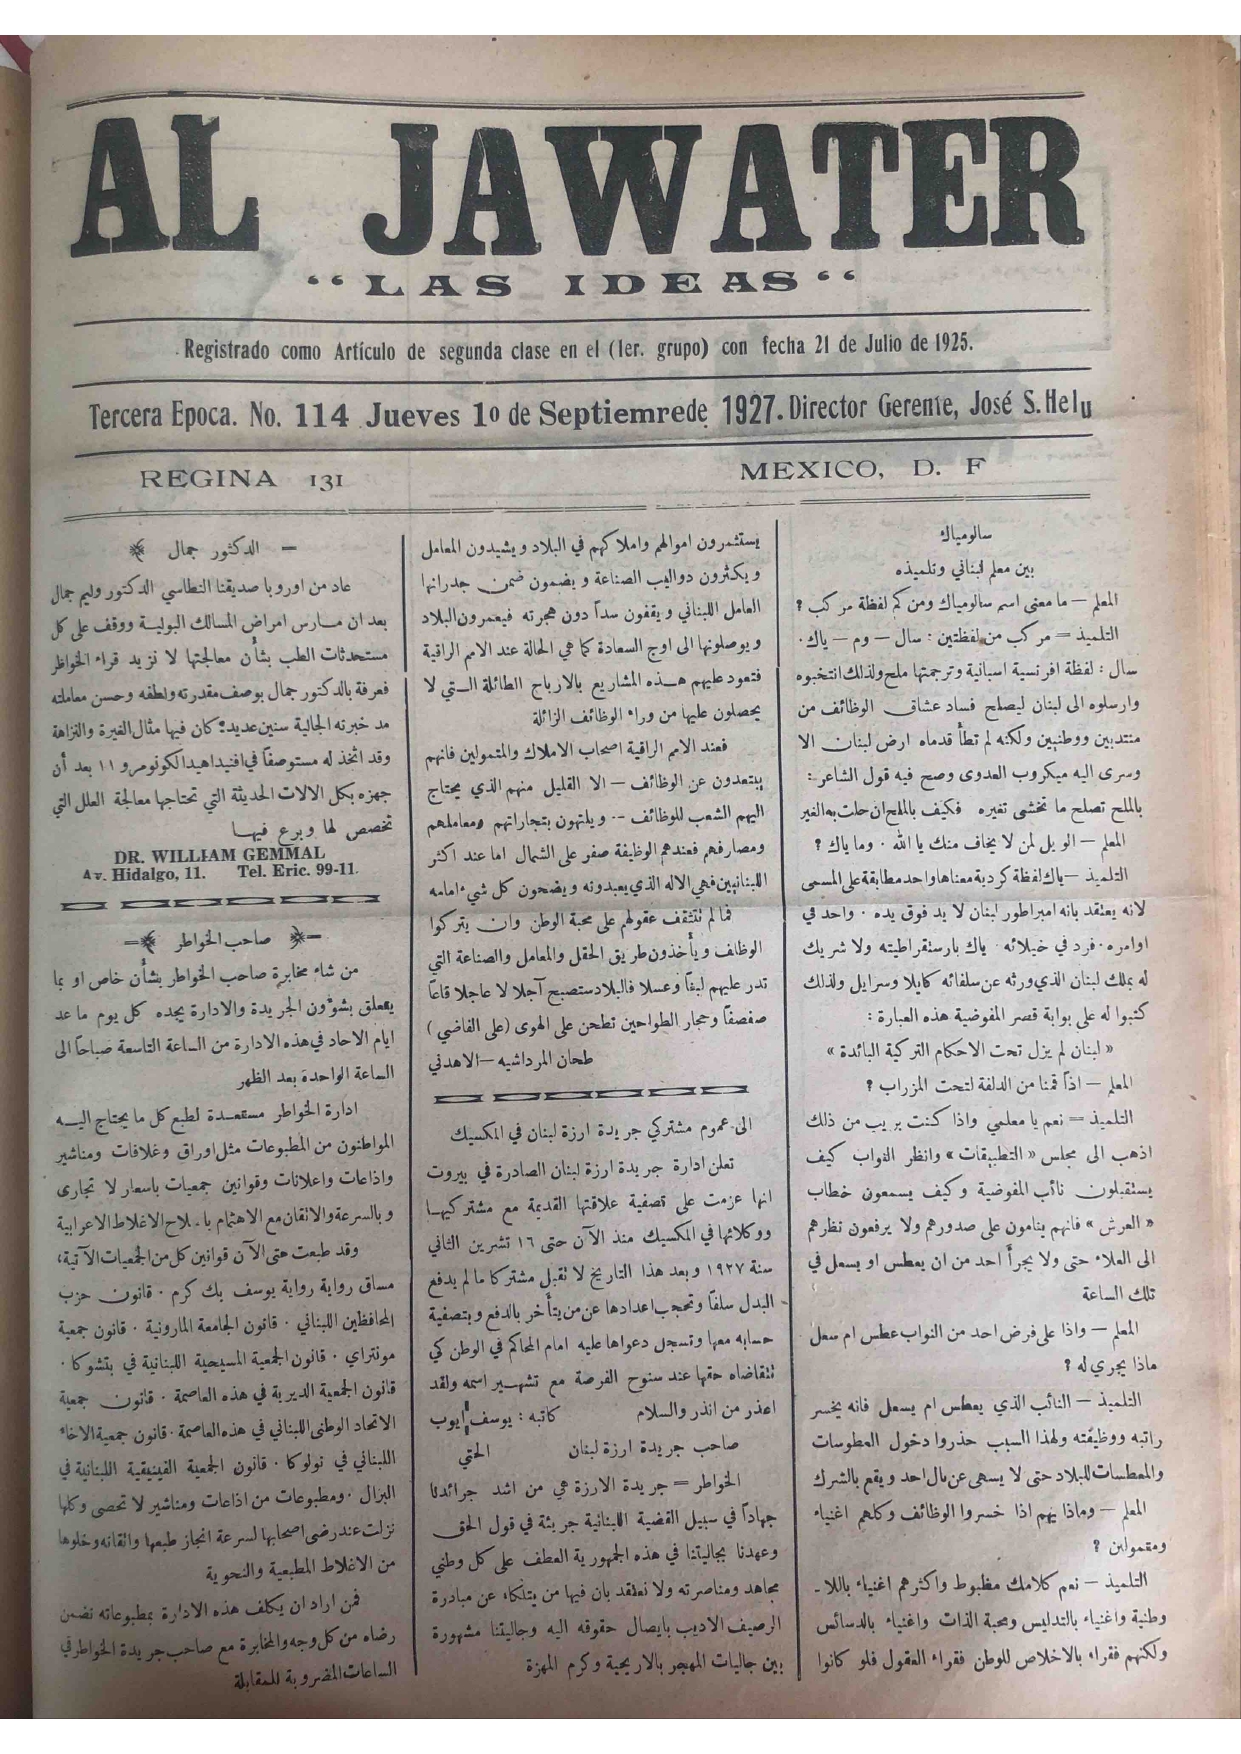 AL JAWATER
"LAS IDEAS"
Registrado como Artículo de segunda clase en el (1er. grupo) con fecha 21 de Julio de 1925.
Tercera Epoca. No. 114 Jueves 1º de Septiemrede 1927. Director Gerente, José S. Helu
REGINA 131
MEXICO, D. F
سالومياك
بين معلم لبناني وتلميذه
المعلم — ما معنى اسم سالومياك ومن كم لفظة مركب ؟
التلميذ = مركب من لفظتين : سال — وم — ياك .
سال : لفظة افرنسية اسبانية وترجمتها ملح ولذلك انتخبوه
وارسلوه الى لبنان ليصلح فساد عشاق الوظائف من
منتدبين ووطنيين ولكنه لم تطأ قدماه ارض لبنان الا
وسرى اليه ميكروب العدوى وصح فيه قول الشاعر :
بالملح تصلح ما تخشى تغيره فكيف بالملح ان حلت به الغير
المعلم — الويل لمن لا يخاف منك يا الله . وما ياك ؟
التلميذ — ياك لفظة كردية معناها واحد مطابقة على المسمى
لانه يعتقد بانه امبراطور لبنان لا يد فوق يده . واحد في
اوامره . فرد في خيلائه . ياك بارستقراطيته ولا شريك
له بملك لبنان الذي ورثه عن سلفائه كايلا وسرايل ولذلك
كتبوا له على بوابة قصر المفوضية هذه العبارة :
« لبنان لم يزل تحت الاحكام التركية البائدة »
المعلم — اذاً قمنا من الدلفة لتحت المزراب ؟
التلميذ = نعم يا معلمي واذا كنت بريب من ذلك
اذهب الى مجلس « التطبيقات » وانظر النواب كيف
يستقبلون نائب المفوضية وكيف يسمعون خطاب
« العرش » فانهم ينامون على صدورهم ولا يرفعون نظرهم
الى العلاء حتى ولا يجرأ احد من ان يعطس او يسعل في
تلك الساعة
المعلم — واذا على فرض احد من النواب عطس ام سعل
ماذا يجري له ؟
التلميذ — النائب الذي يعطس ام يسعل فانه يخسر
راتبه ووظيفته ولهذا السبب حذروا دخول المطوسات
والمعطسات للبلاد حتى لا يسهى عن بال احد ويقع بالشرك
المعلم — وماذا يهم اذا خسروا الوظائف وكلهم اغنياء
ومتمولين ؟
التلميذ — نعم كلامك مظبوط واكثرهم اغنياء باللا -
وطنية واغنياء بالتدليس ومحبة الذات واغنياء بالدسائس
ولكنهم فقراء بالاخلاص للوطن فقراء العقول فلو كانوا
يستثمرون اموالهم واملاكهم في البلاد ويشيدون المعامل
ويكثرون دواليب الصناعة ويضمون ضمن جدرانها
العامل اللبناني ويقفون سداً دون هجرته فيعمرون البلاد
ويوصلونها الى اوج السعادة كما هي الحالة عند الامم الراقية
فتعود عليهم هذه المشاريع بالارباح الطائلة التي لا
يحصلون عليها من وراء الوظائف الزائلة
فعند الامم الراقية اصحاب الاملاك والمتمولين فانهم
يبتعدون عن الوظائف — الا القليل منهم الذي يحتاج
اليهم الشعب للوظائف — ويلتهون بتجاراتهم ومعاملهم
ومصارفهم فعندهم الوظيفة صفر على الشمال اما عند اكثر
اللبنانيين فهي الاله الذي يعبدونه ويضحون كل شيء امامه
فما لم تتثقف عقولهم على محبة الوطن وان يتركوا
الوظائف ويأخذون طريق الحقل والمعامل والصناعة التي
تدر عليهم لبناً وعسلا فالبلاد ستصبح آجلا لا عاجلا قاعاً
صفصفاً وحجار الطواحين تطحن على الهوى ( على الفاضي )
طحان المرداشيه — الاهدني
الى عموم مشتركي جريدة ارزة لبنان في المكسيك
تعلن ادارة جريدة ارزة لبنان الصادرة في بيروت
انها عزمت على تصفية علاقتها القديمة مع مشتركيها
ووكلائها في المكسيك منذ الآن حتى ١٦ تشرين الثاني
سنة ١٩٢٧ وبعد هذا التاريخ لا تقبل مشتركا ما لم يدفع
البدل سلفاً وتحجب اعدادها عن من يتأخر بالدفع وبتصفية
حسابه معها وتسجل دعواها عليه امام المحاكم في الوطن كي
تتقاضاه حقها عند سنوح الفرصة مع تشهير اسمه ولقد
اعذر من انذر والسلام كاتبه : يوسف ايوب
صاحب جريدة ارزة لبنان الحتي
الخواطر = جريدة الارزة هي من اشد جرائدنا
جهاداً في سبيل القضية اللبنانية جريئة في قول الحق
وعهدنا بجاليتنا في هذه الجمهورية العطف على كل وطني
مجاهد ومناصرته ولا نعتقد بان فيها من يتلكاء عن مبادرة
الرصيف الاديب بايصال حقوقه اليه وجاليتنا مشهورة
بين جاليات المهجر بالاريحية وكرم المهزة
— الدكتور جمال
عاد من اوروبا صديقنا النطاسي الدكتور وليم جمال
بعد ان مارس امراض المسالك البولية ووقف على كل
مستحدثات الطب بشأن معالجتها لا نزيد قراء الخواطر
فعرفة بالدكتور جمال بوصف مقدرته ولطفه وحسن معاملته
مد خبرته الجالية سنين عديدة كان فيها مثال الغيرة والنزاهة
وقد اتخذ له مستوصفاً في افنيدا هيدالكو نومرو ١١ بعد أن
جهزه بكل الالات الحديثة التي تحتاجها معالجة العلل التي
تخصص لها وبرع فيها
DR. WILLIAM GEMMAL
Av. Hidalgo, 11. Tel. Eric. 99-11.
صاحب الخواطر
من شاء مخابرة صاحب الخواطر بشأن خاص او بما
يتعلق بشؤون الجريدة والادارة يجده كل يوم ما عد
ايام الاحاد في هذه الادارة من الساعة التاسعة صباحاً الى
الساعة الواحدة بعد الظهر
ادارة الخواطر مستعدة لطبع كل ما يحتاج اليه
المواطنون من المطبوعات مثل اوراق وغلافات ومناشير
واذاعات واعلانات وقوانين جمعيات باسعار لا تجارى
وبالسرعة والاتقان مع الاهتمام باصلاح الاغلاط الاعرابية
وقد طبعت حتى الآن قوانين كل من الجمعيات الآتية :
مساق رواية رواية يوسف بك كرم . قانون حزب
المحافظين اللبناني . قانون الجامعة المارونية . قانون جمعية
مونتراي . قانون الجمعية المسيحية اللبنانية في بتشوكا .
قانون الجمعية الديرية في هذه العاصمة . قانون جمعية
الاتحاد الوطني اللبناني في هذه العاصمة . قانون جمعية الاخاء
اللبناني في تولوكا . قانون الجمعية الفينيقية اللبنانية في
البزال . ومطبوعات من اذاعات ومناشير لا تحصى وكلها
نزلت عند رضى اصحابها لسرعة انجاز طبعها واتقانه وخلوها
من الاغلاط المطبعية والنحوية
فمن اراد ان يكلف هذه الادارة بمطبوعاته نضمن
رضاه من كل وجه والمخابرة مع صاحب جريدة الخواطر في
الساعات المضروبة للمقابلة